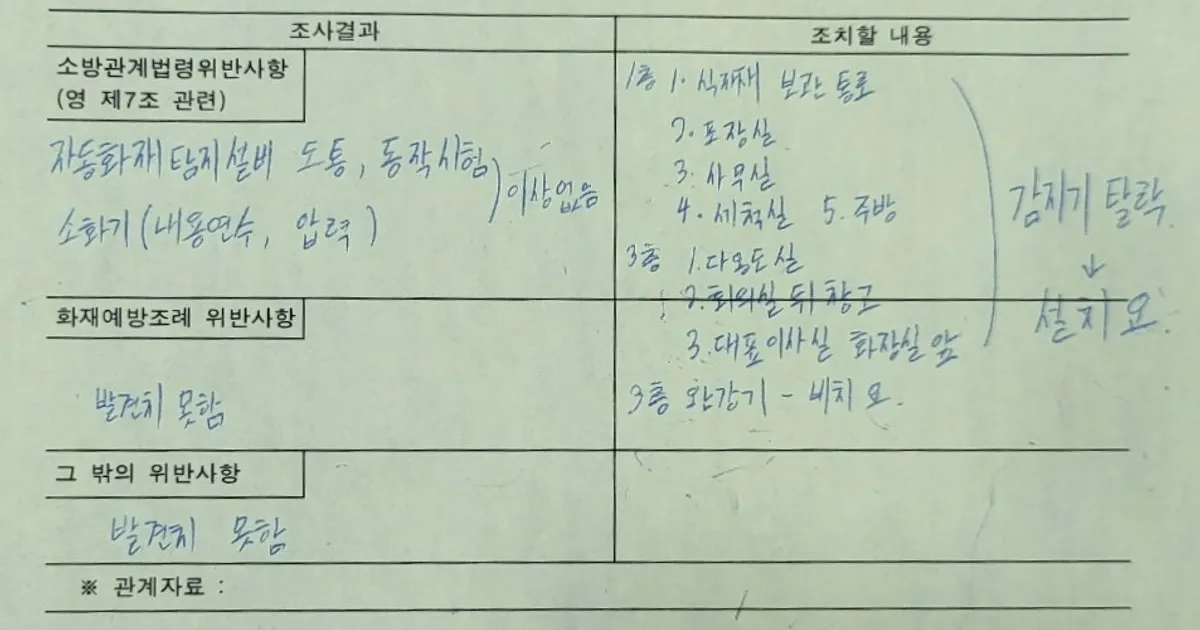 조사결과
조치할 내용
소방관계법령위반사항
(영 제7조 관련)
자동화재탐지설비 도통, 동작시험
소화기(내용연수, 압력)
이상없음
1층 1. 식재재 보관 통로
2. 포장실
3. 사무실
4. 세척실 5. 주방
3층 1. 다용도실
2. 회의실 뒤 창고
3. 대표이사실 화장실 앞
감지기 탈락
↓
설치 요.
3층 완강기 - 비치 요.
화재예방조례 위반사항
발견치 못함
그 밖의 위반사항
발견치 못함
※ 관계자료 :